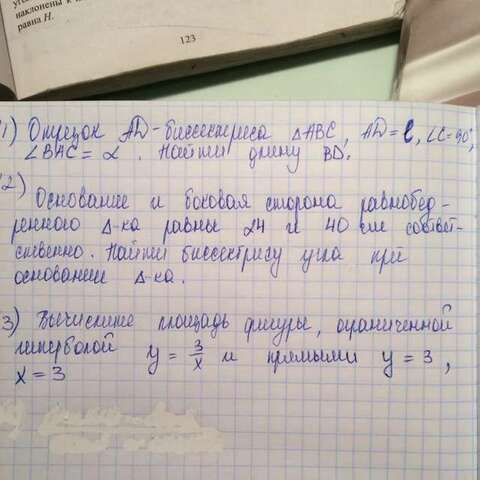 наклонены к
равна H.
123
1) Отрезок AD - биссектриса ΔABC, AD = l, ∠C = 90°,
∠BAC = α. Найти длину BD.
2) Основание и боковая сторона равнобед-
ренного Δ-ка равны 24 и 40 см соответ-
ственно. Найти биссектрису угла при
основании Δ-ка.
3) Вычислите площадь фигуры, ограниченной
гиперболой y = 3/x и прямыми y = 3,
x = 3